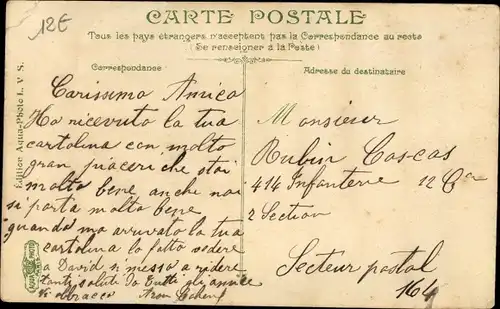 12€
CARTE POSTALE
Tous les pays étrangers n'acceptent pas la Correspondance au recto
(Se renseigner à la Poste)
Correspondance
Adresse du destinataire
Édition Aqua-Photo L. V. S.
Carissimo Amico
Ho ricevuto la tua
cartolina con molto
gran piaceri che stai
molto bene anche noi
si porta molto bene
quando ma arrivato la tua
cartolina lo fatto vedere
a David si messo a ridere
tanti saluti da tutti gli amici
Vi abbracco Aron
Monsieur
Rubin Cascas
414 Infanterie 12 Cie
2 Section
Secteur postal
164
AQUA PHOTO